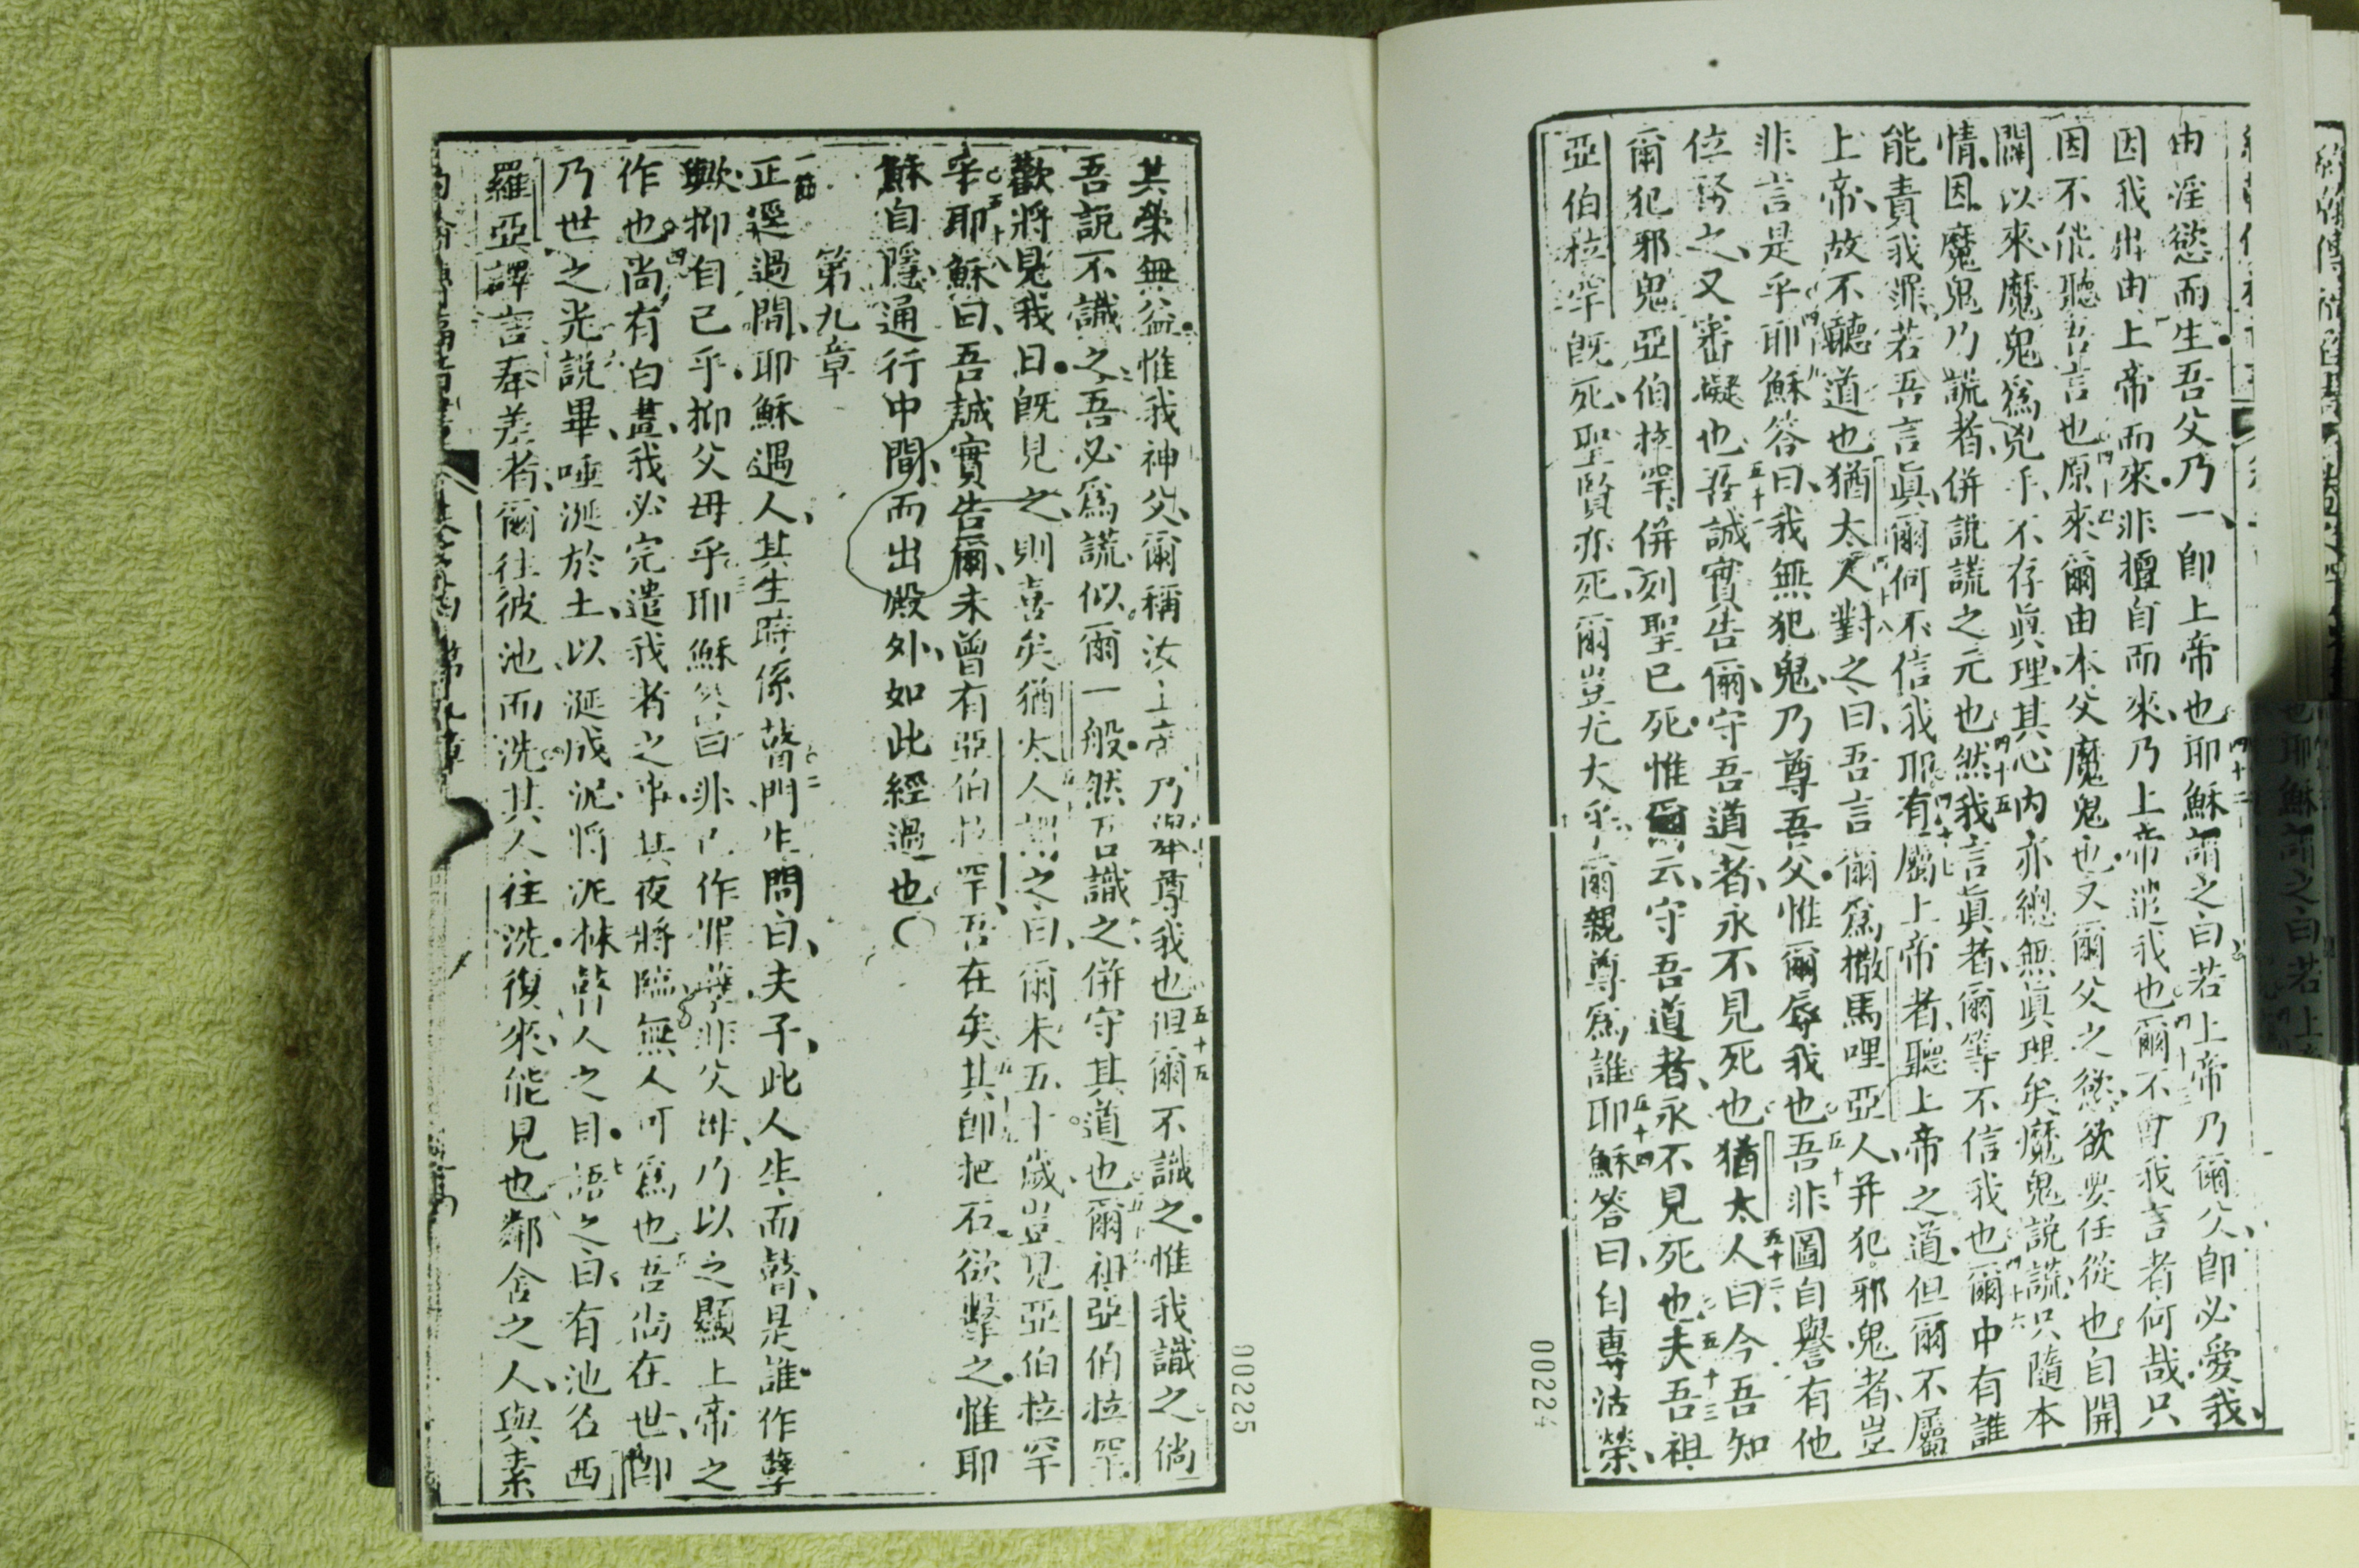 由淫慾而生吾父乃一即上帝也耶穌謂之曰若上帝乃爾父即必愛我
因我出由上帝而來非擅自而來乃上帝遣我也爾不會我言者何哉只
因不能聽吾言也原來爾由本父魔鬼也又爾父之慾欲要任從也自開
闢以來魔鬼為兇手不存眞理其心內亦總無眞理矣魔鬼說謊只隨本
情因魔鬼乃謊者併說謊之元也然我言眞者爾等不信我也爾中有誰
能責我罪若吾言眞爾何不信我耶有屬上帝者聽上帝之道但爾不屬
上帝故不聽道也猶太人對之曰吾言爾為撒馬哩亞人并犯邪鬼者豈
非言是乎耶穌答曰我無犯鬼乃尊吾父惟爾辱我也吾非圖自譽有他
位務之又審擬也吾誠實告爾守吾道者永不見死也猶太人曰今吾知
爾犯邪鬼亞伯拉罕併列聖已死惟爾云守吾道者永不見死也夫吾祖
亞伯拉罕既死聖賢亦死爾豈尤大乎爾親尊為誰耶穌答曰自專沽榮
00224
其榮無益惟我神父爾稱汝上帝乃彈尊我也但爾不識之惟我識之倘
吾說不識之吾必為謊似爾一般然吾識之併守其道也爾祖亞伯拉罕
歡將見我日既見之則喜矣猶太人謂之曰爾未五十歲豈見亞伯拉罕
乎耶穌曰吾誠實告爾未曾有亞伯拉罕吾在矣其即把石欲擊之惟耶
穌自隱通行中間而出殿外如此經過也
第九章
一節
正逕過間耶穌遇人其生時係瞽門生問曰夫子此人生而瞽是誰作孽
歟抑自己乎抑父母乎耶穌答曰非己作罪孽非父母乃以之顯上帝之
作也尚有白晝我必完遣我者之事其夜將臨無人可為也吾尚在世即
乃世之光說畢唾涎於土以涎成泥將泥抹瞽人之目語之曰有池名西
羅亞譯言奉差者爾往彼池而洗其人往洗復來能見也鄰舍之人與素
第九章
00225